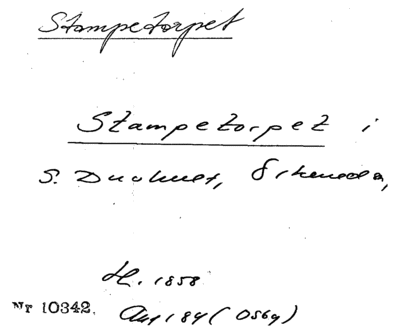 Stampetorpet
Stampetorpet i
S. Duvhult, Ökenedn,
H. 1858
Nr 10342. Ant 184 (0569)